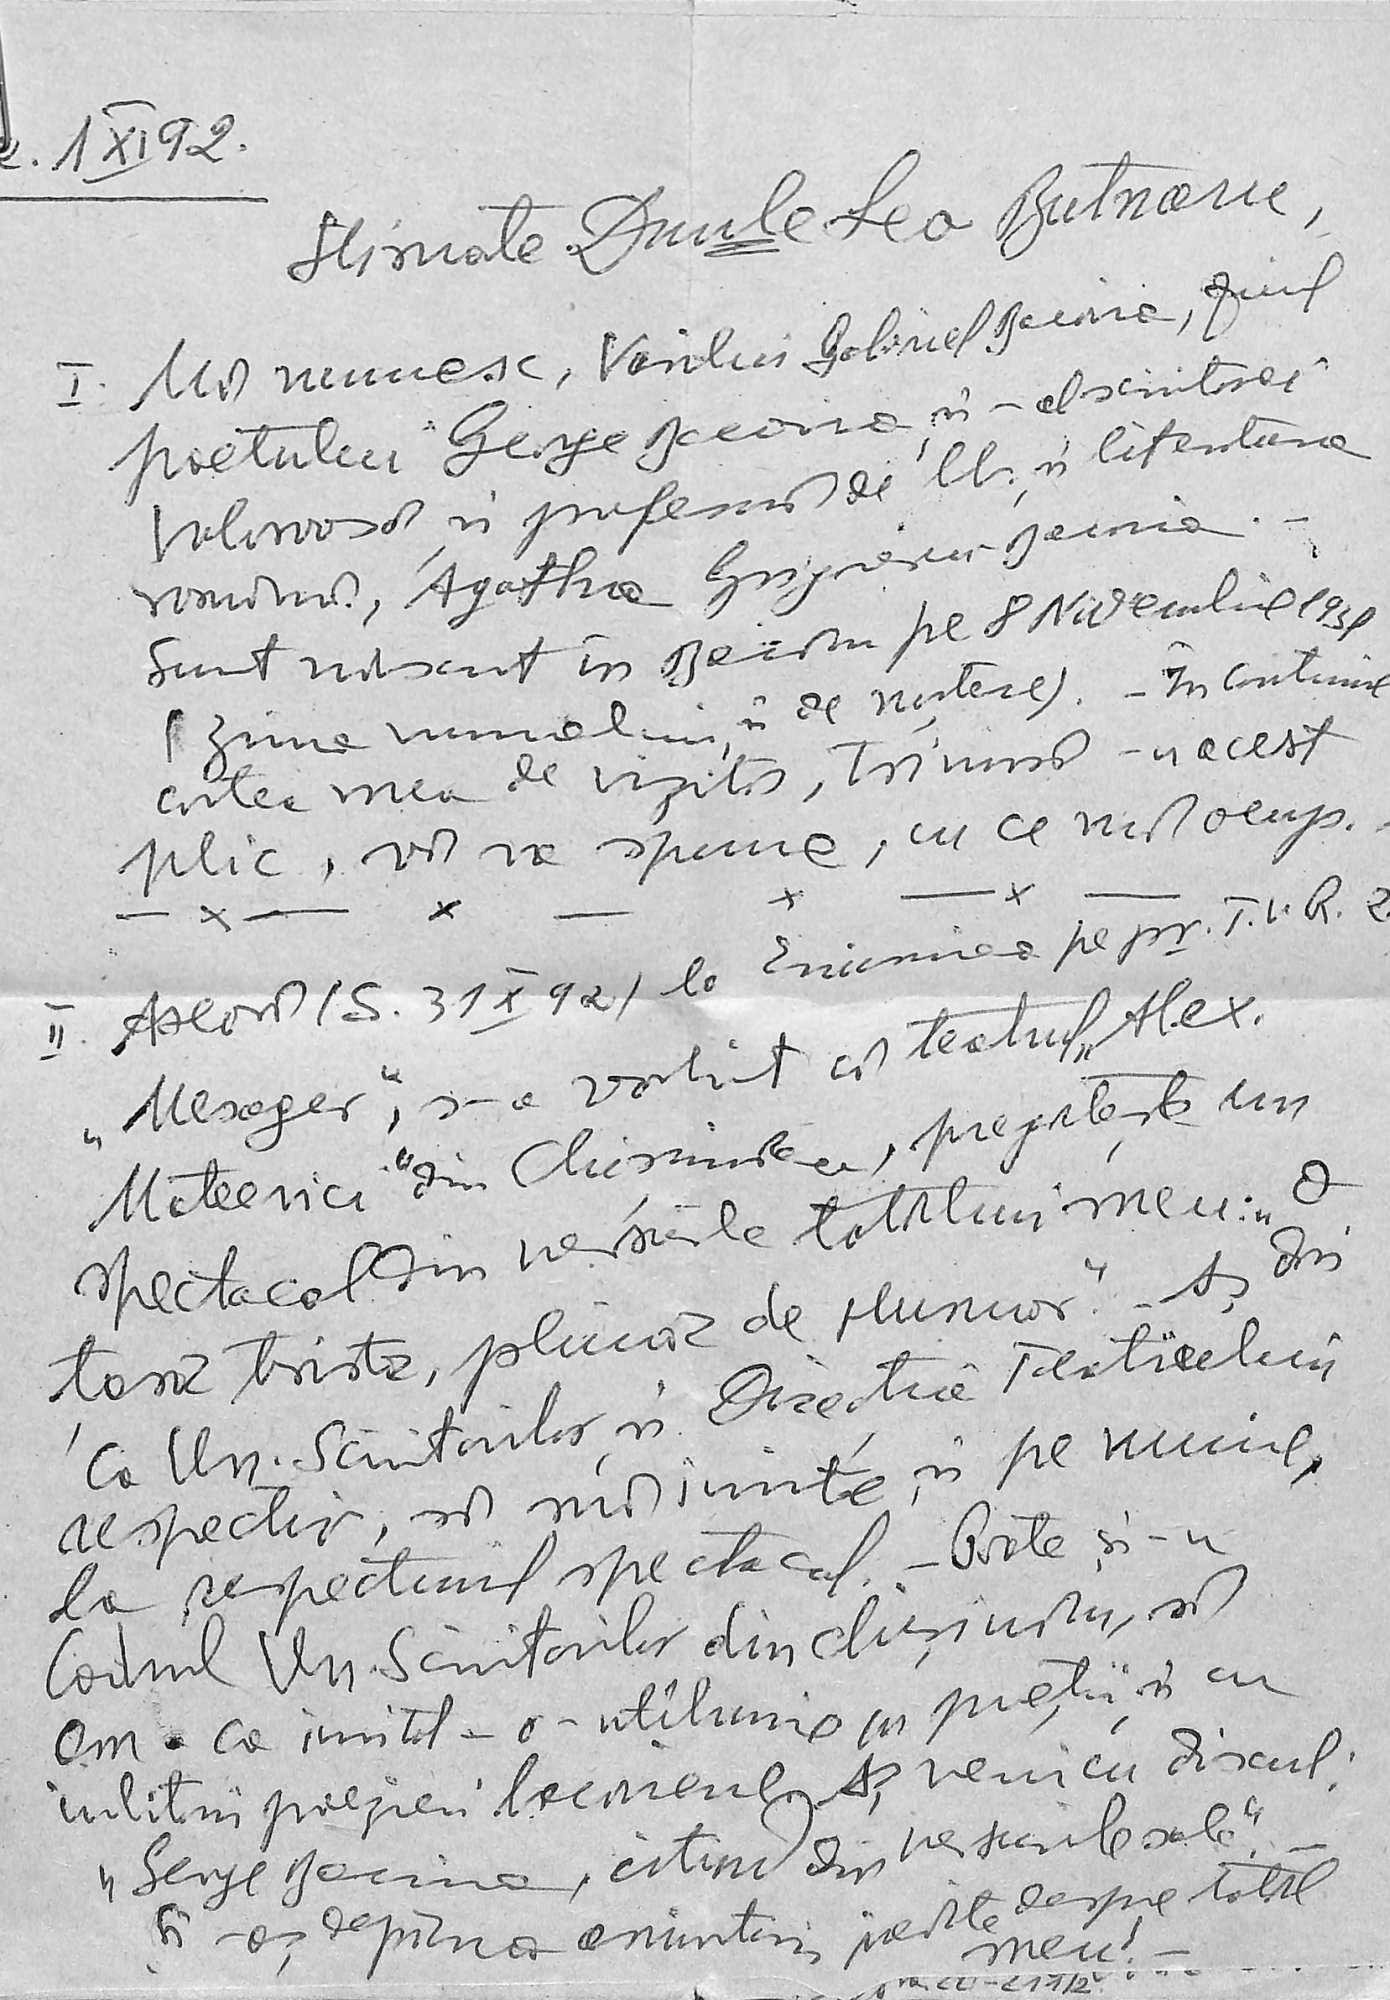 1 XI 92.
Stimate Dnule Leo Butnaru,
I. Mă numesc, Vasiliu Gabriel Bacovia, fiul
poetului George Bacovia, și-al scriitoarei
valoroasă, și profesoară de lb. și literatura
română, Agatha Grigorescu-Bacovia. -
Sunt născut în București pe 8 Noiembrie 1931
(ziua numelui, și de naștere). - În continuare
cartea mea de vizită, trimisă -n acest
plic, vă va spune, cu ce mă ocup. -
— x — x — x — x —
II. Aseară (S. 31 X 92) la Emisiunea pe pr. T.V.R. 2.
„Mesager“, s-a vorbit că teatrul „Alex.
Mateevici“ din Chișinău, pregătește un
spectacol din versurile tatălui meu: „O
țară tristă, plină de humor“. - Aș dori
ca Un. Scriitorilor și Direcția Teatrului
respectiv, să mă invite și pe mine,
la respectivul spectacol. - Poate și-n
Cadrul Un. Scriitorilor din Chișinău, să
am ca invitat - o-ntâlnire cu poeții, și cu
iubitorii poeziei bacoviene. Aș veni cu discul:
„George Bacovia, citind din versurile sale“. -
Și -aș depăna amintiri inedite despre tatăl
meu! -